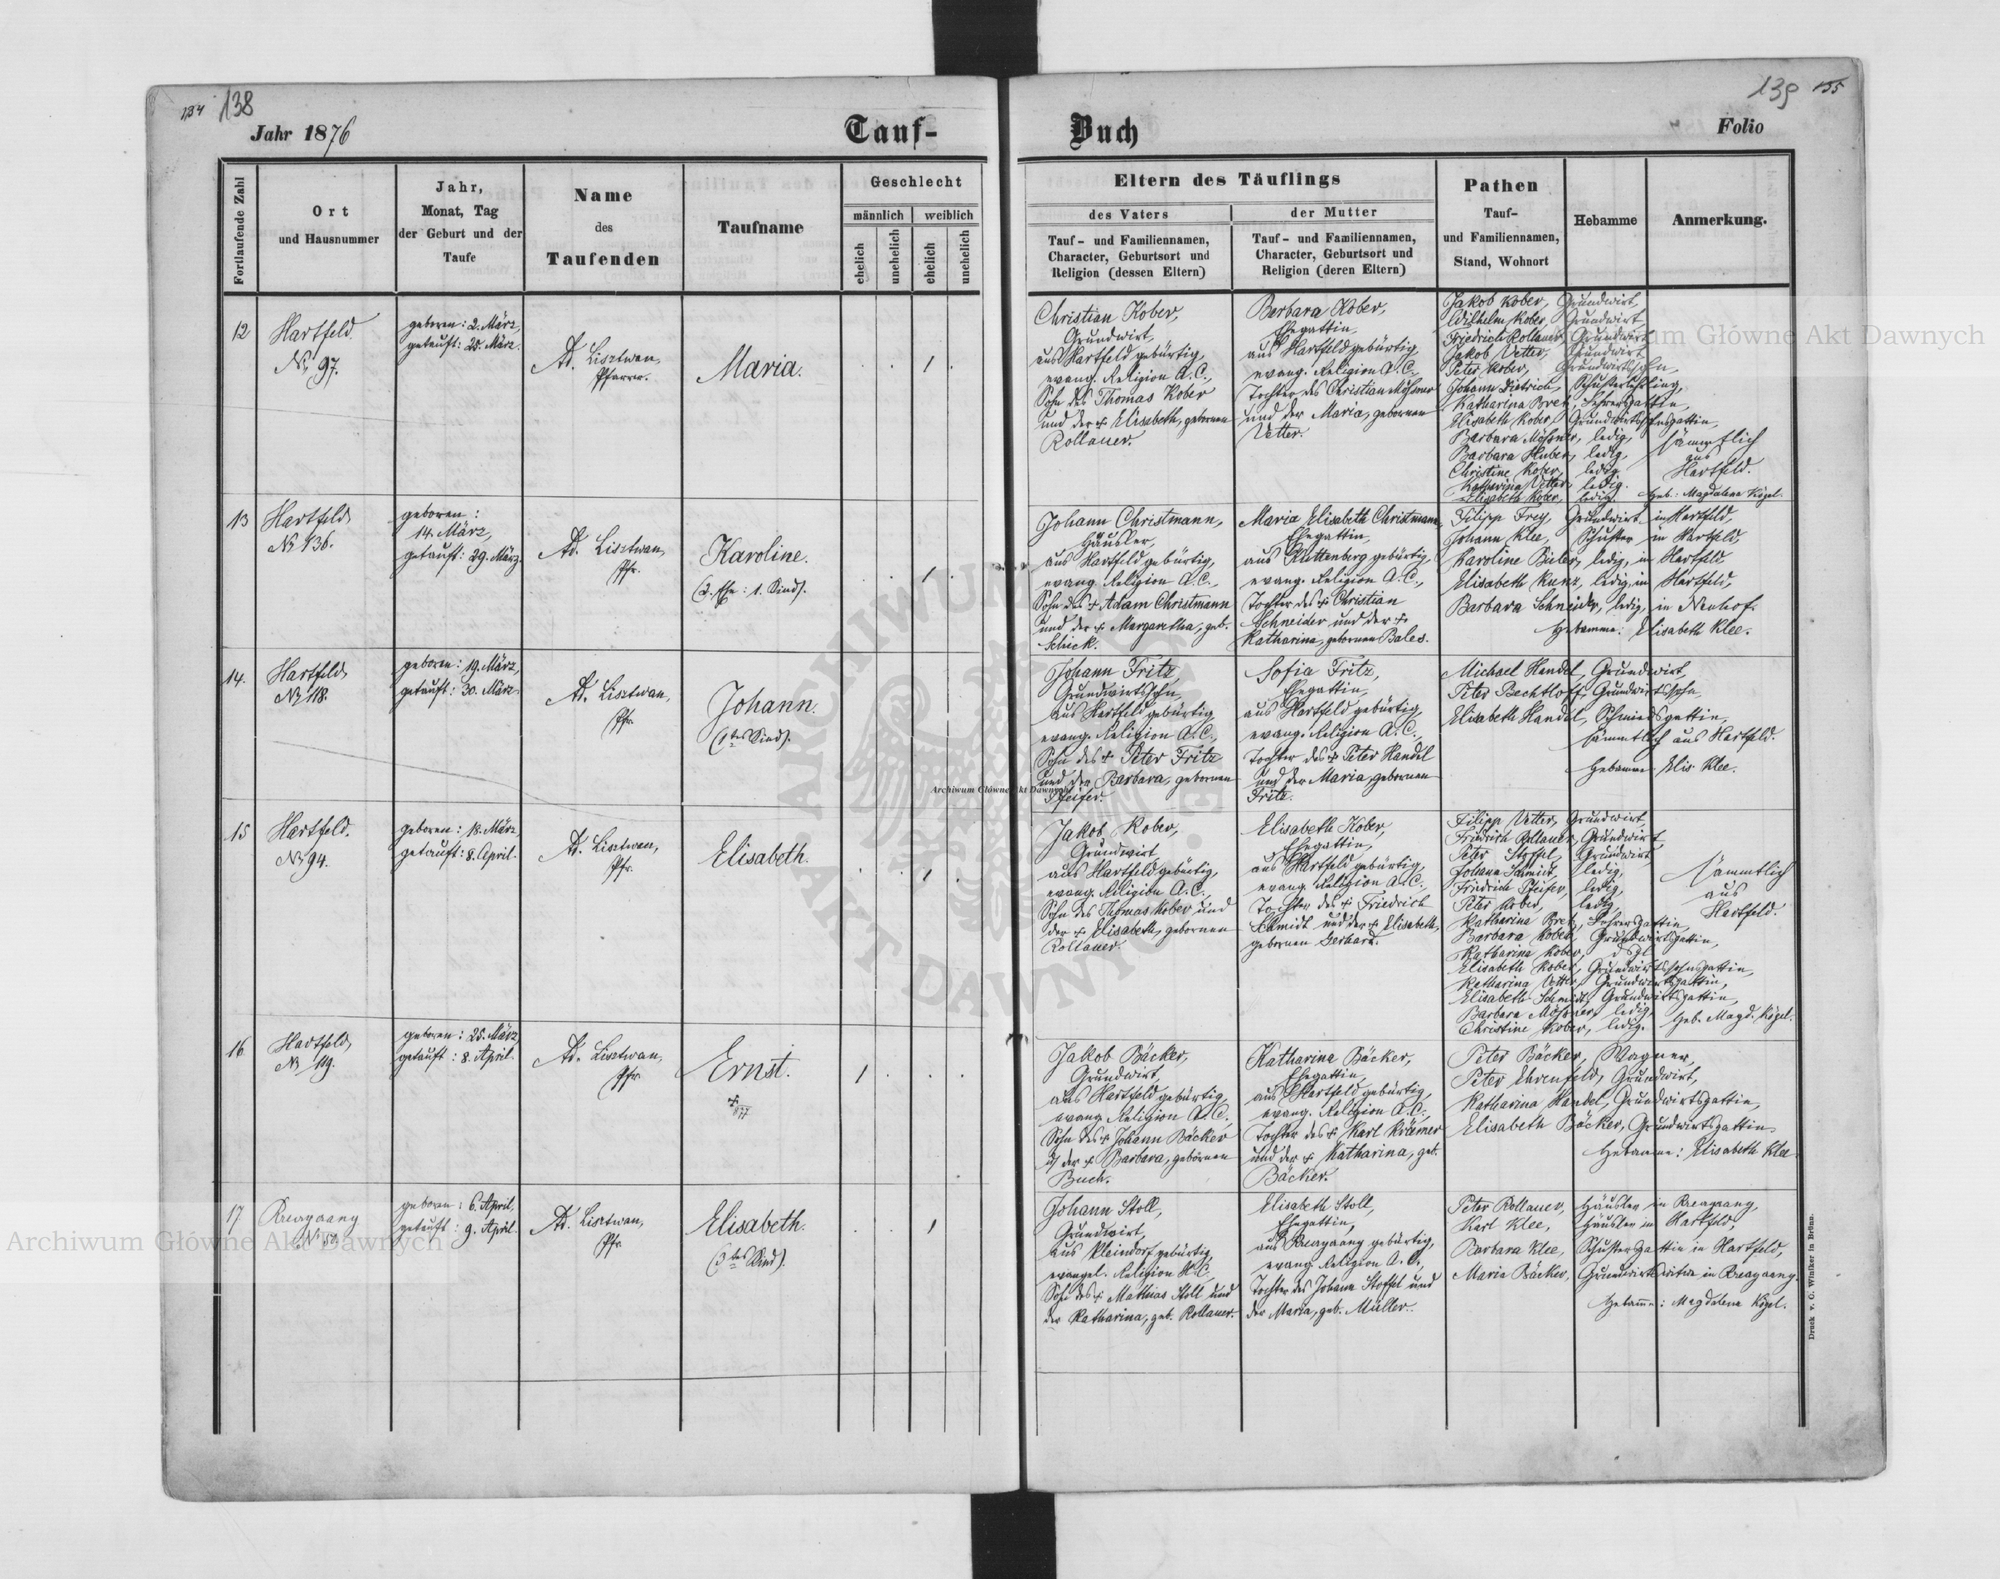 134 138
Jahr 1876
Tauf-
Buch
139 135
Folio
Fortlaufende Zahl
Ort
und Hausnummer
Jahr,
Monat, Tag
der Geburt und der
Taufe
Name
des
Taufenden
Taufname
Geschlecht
männlich
weiblich
ehelich
unehelich
ehelich
unehelich
Eltern des Täuflings
des Vaters
der Mutter
Tauf- und Familiennamen,
Character, Geburtsort und
Religion (dessen Eltern)
Tauf- und Familiennamen,
Character, Geburtsort und
Religion (deren Eltern)
Pathen
Tauf-
und Familiennamen,
Stand, Wohnort
Hebamme
Anmerkung.
12
Hartfeld.
No 97.
geboren: 2. März,
getauft: 25. März.
Ad. Lisztwan,
Pfarrer.
Maria.
1
Christian Kober,
Grundwirt,
aus Hartfeld gebürtig,
evang. Religion A. C.,
Sohn des Thomas Kober
und der + Elisabeth, gebornen
Rollauer.
Barbara Kober,
Ehegattin,
aus Hartfeld gebürtig,
evang. Religion A. C.,
Tochter des Christian Mößner
und der Maria, gebornen
Vetter.
Jakob Kober, Grundwirt,
Wilhelm Kober, Grundwirt
Friedrich Rollauer, Grundwirt
Jakob Vetter, Grundwirt
Peter Kober, Grundwirtssohn,
Johann Dietrich, Schusterlehrling,
Katharina Bret, Lehrersgattin,
Elisabeth Kober, Grundwirtssohnsgattin,
Barbara Mößner, ledig,
Barbara Huber, ledig,
Christine Kober, ledig,
Katharina Vetter, ledig.
Elisabeth Kober, ledig.
sämmtlich
aus
Hartfeld.
Heb: Magdalena Kögel.
13
Hartfeld,
No 136.
geboren:
14. März,
getauft: 29. März.
Ad. Lisztwan,
Pfr.
Karoline.
(2. Ehe: 1. Kind).
1
Johann Christmann,
Häusler,
aus Hartfeld gebürtig,
evang. Religion A. C.,
Sohn des + Adam Christmann
und der + Margaretha, geb.
Schick.
Maria Elisabeth Christmann,
Ehegattin,
aus Kuttenberg gebürtig,
evang. Religion A. C.,
Tochter des + Christian
Schneider und der +
Katharina, gebornen Bales.
Filipp Frey, Grundwirt in Hartfeld,
Johann Klee, Schuster in Hartfeld,
Karoline Bisler, ledig, in Hartfeld,
Elisabeth Kunz, ledig, in Hartfeld,
Barbara Schneider, ledig, in Neuhof.
Hebamme: Elisabeth Klee.
14.
Hartfeld,
No 118.
geboren: 19. März,
getauft: 30. März.
Ad. Lisztwan,
Pfr.
Johann.
(1tes Kind).
Johann Fritz,
Grundwirtssohn,
aus Hartfeld gebürtig,
evang. Religion A. C.,
Sohn des + Peter Fritz
und der Barbara, gebornen
Pfeifer.
Sofia Fritz,
Ehegattin,
aus Hartfeld gebürtig,
evang. Religion A. C.,
Tochter des + Peter Handel
und der Maria, gebornen
Fritz.
Michael Handel, Grundwirt,
Peter Bechtloff, Grundwirtssohn,
Elisabeth Handel, Schmiedsgattin,
sämmtlich aus Hartfeld.
Hebamme Elis. Klee.
15
Hartfeld.
No 94.
geboren: 18. März,
getauft: 8. April.
Ad. Lisztwan,
Pfr.
Elisabeth.
1
Jakob Kober,
Grundwirt,
aus Hartfeld gebürtig,
evang. Religion A. C.,
Sohn des Thomas Kober und
der + Elisabeth, gebornen
Rollauer.
Elisabeth Kober,
Ehegattin,
aus Hartfeld gebürtig,
evang. Religion A. C.,
Tochter des + Friedrich
Schmidt und der + Elisabeth,
gebornen Gerhard.
Filipp Vetter, Grundwirt
Friedrich Rollauer, Grundwirt
Peter Stoffel, Grundwirt
Johann Schmidt, ledig,
Friedrich Pfeifer, ledig,
Peter Kober, ledig,
Katharina Bret, Lehrersgattin,
Barbara Kober, Grundwirtsgattin,
Katharina Kober, dsgl.
Elisabeth Kober, Grundwirtssohnsgattin,
Katharina Vetter, Grundwirtsgattin,
Elisabeth Schmidt, Grundwirtsgattin,
Barbara Mößner, ledig,
Christine Kober, ledig.
sämmtlich
aus
Hartfeld.
Heb. Magd. Kögel.
16
Hartfeld,
No 119.
geboren: 25. März,
getauft: 8. April.
Ad. Lisztwan,
Pfr.
Ernst.
+
1877
1
Jakob Bäcker,
Grundwirt,
aus Hartfeld gebürtig,
evang. Religion A. C.,
Sohn des + Johann Bäcker
u. der + Barbara, gebornen
Buch.
Katharina Bäcker,
Ehegattin,
aus Hartfeld gebürtig,
evang. Religion A. C.,
Tochter des + Karl Krämer
und der + Katharina, geb.
Bäcker.
Peter Bäcker, Wagner,
Peter Ehrenfeld, Grundwirt,
Katharina Handel, Grundwirtsgattin,
Elisabeth Bäcker, Grundwirtsgattin.
Hebamme: Elisabeth Klee.
17
geboren: 6. April.
getauft: 9. April.
Ad. Lisztwan,
Pfr.
Elisabeth.
(3tes Kind).
1
Johann Stoll,
Grundwirt,
aus Kleindorf gebürtig,
evangel. Religion H. C.,
Sohn des + Mathias Stoll und
der Katharina, geb. Rollauer.
Elisabeth Stoll,
Ehegattin,
gebürtig,
evang. Religion A. C.,
Tochter des Johann Stoffel und
der Maria, geb. Müller.
Peter Rollauer, Häusler in
Karl Klee, Häusler in Hartfeld,
Barbara Klee, Schustersgattin in Hartfeld,
Maria Bäcker,
Hebamme: Magdalena Kögel.
Druck v. C. Winiker in Brünn.
Archiwum Główne Akt Dawnych
Archiwum Główne Akt Dawnych
Archiwum Główne Akt Dawnych